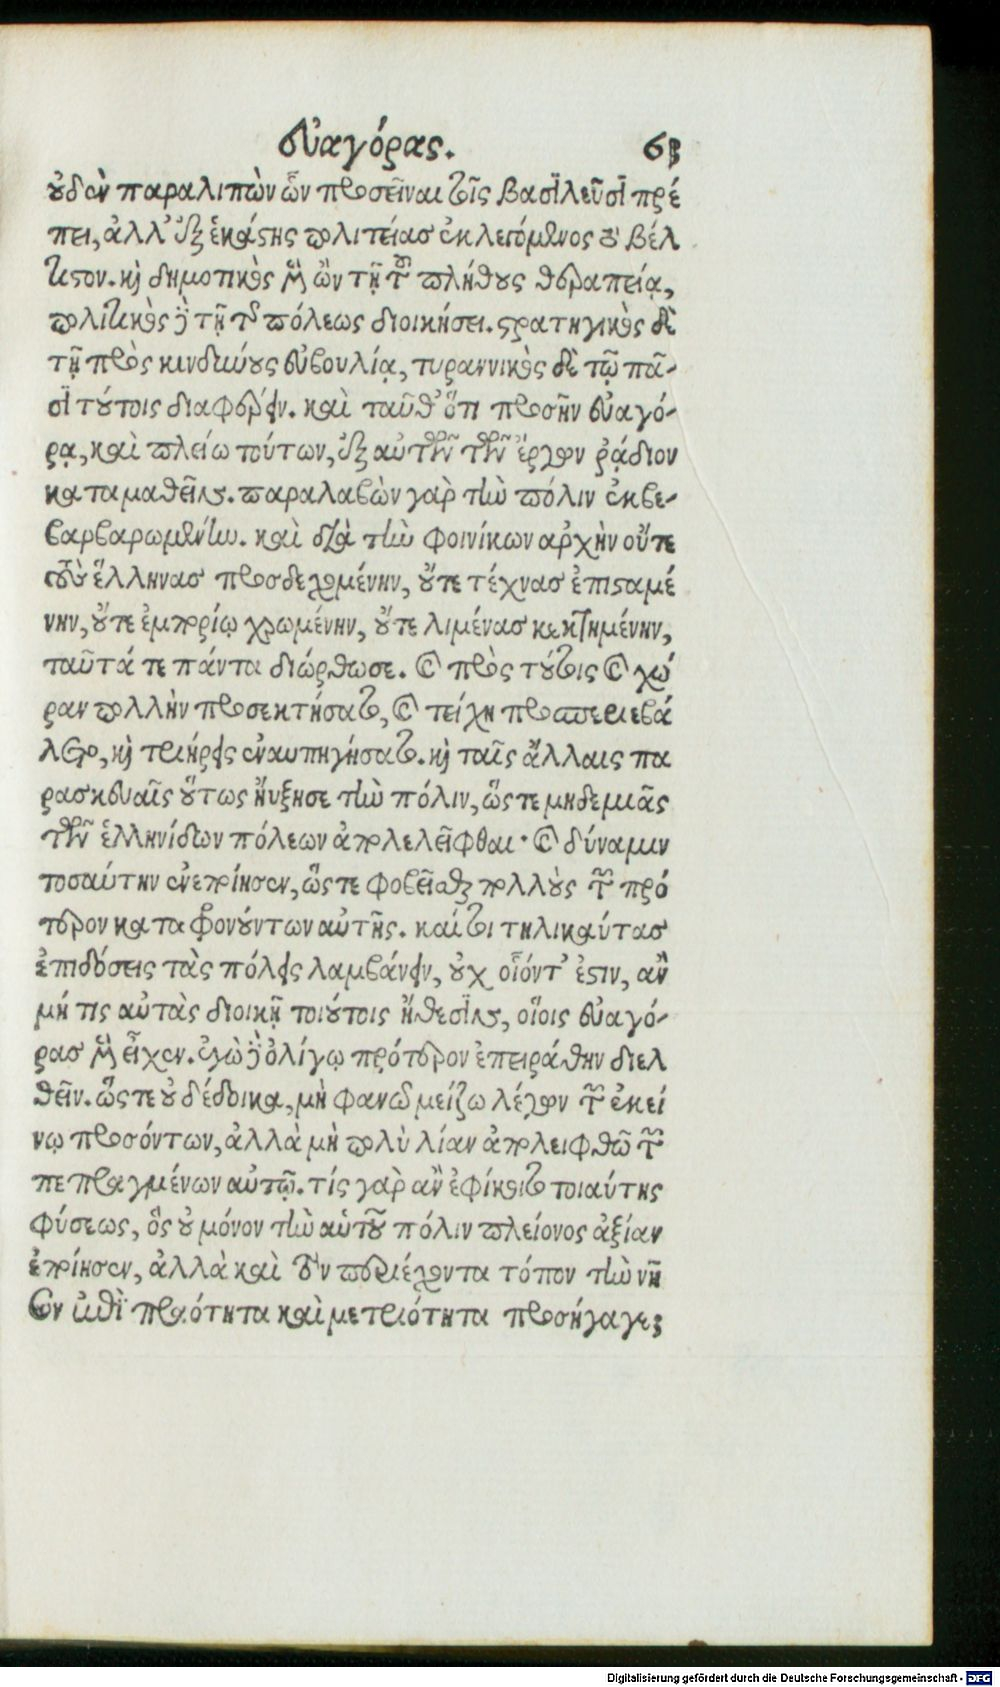 εὐαγόρας. 63
οὐδὲν παραλιπὼν ὧν προσεῖναι τοῖς βασιλεῦσι πρέ
πει, ἀλλ' ἐξ ἑκάστης πολιτείας ἐκλεγόμενος τὸ βέλ
τιστον. καὶ δημοτικὸς μὲν ὢν τῇ τοῦ πλήθους θεραπείᾳ,
πολιτικὸς δὲ τῇ τῆς πόλεως διοικήσει. στρατηγικὸς δὲ
τῇ πρὸς κινδύνους εὐβουλίᾳ, τυραννικὸς δὲ τῷ πᾶ-
σι τούτοις διαφέρειν. καὶ ταῦθ' ὅτι προσῆν εὐαγό-
ρᾳ, καὶ πλείω τούτων, ἐξ αὐτῶν τῶν ἔργων ῥᾴδιον
καταμαθεῖν. παραλαβὼν γὰρ τὴν πόλιν ἐκβε-
βαρβαρωμένην. καὶ διὰ τὴν φοινίκων αρχὴν οὔτε
τοὺς ἕλληνας προσδεχομένην, οὔτε τέχνας ἐπισταμέ
νην, οὔτε ἐμπορίῳ χρωμένην, οὔτε λιμένας κεκτημένην,
ταῦτά τε πάντα διώρθωσε. καὶ πρὸς τούτοις καὶ χώ
ραν πολλὴν προσεκτήσατο, καὶ τείχη προσπεριεβά
λετο, καὶ τριήρεις ἐναυπηγήσατο. καὶ ταῖς ἄλλαις πα
ρασκευαῖς οὕτως ηὔξησε τὴν πόλιν, ὥστε μηδεμιᾶς
τῶν ἑλληνίδων πόλεων ἀπολελεῖφθαι· καὶ δύναμιν
τοσαύτην ἐνεποίησεν, ὥστε φοβεῖσθαι πολλοὺς τῶν πρό
τερον καταφρονούντων αὐτῆς. καίτοι τηλικαύτας
ἐπιδόσεις τὰς πόλεις λαμβάνειν, οὐχ οἷόντ' ἐστιν, ἂν
μή τις αὐτὰς διοικῇ τοιούτοις ἤθεσιν, οἵοις εὐαγό-
ρας μὲν εἶχεν. ἐγὼ δὲ ὀλίγῳ πρότερον ἐπειράθην διελ
θεῖν. ὥστε οὐ δέδοικα, μὴ φανῶ μείζω λέγων τῶν ἐκεί
νῳ προσόντων, ἀλλὰ μὴ πολὺ λίαν ἀπολειφθῶ τῶν
πεπραγμένων αὐτῷ. τίς γὰρ ἂν ἐφίκοιτο τοιαύτης
φύσεως, ὃς οὐ μόνον τὴν αὑτοῦ πόλιν πλείονος ἀξίαν
ἐποίησεν, ἀλλὰ καὶ τὸν περιέχοντα τόπον τὴν νῆ
σον ἐπὶ πραότητα καὶ μετριότητα προσήγαγε;
Digitalisierung gefördert durch die Deutsche Forschungsgemeinschaft - DFG